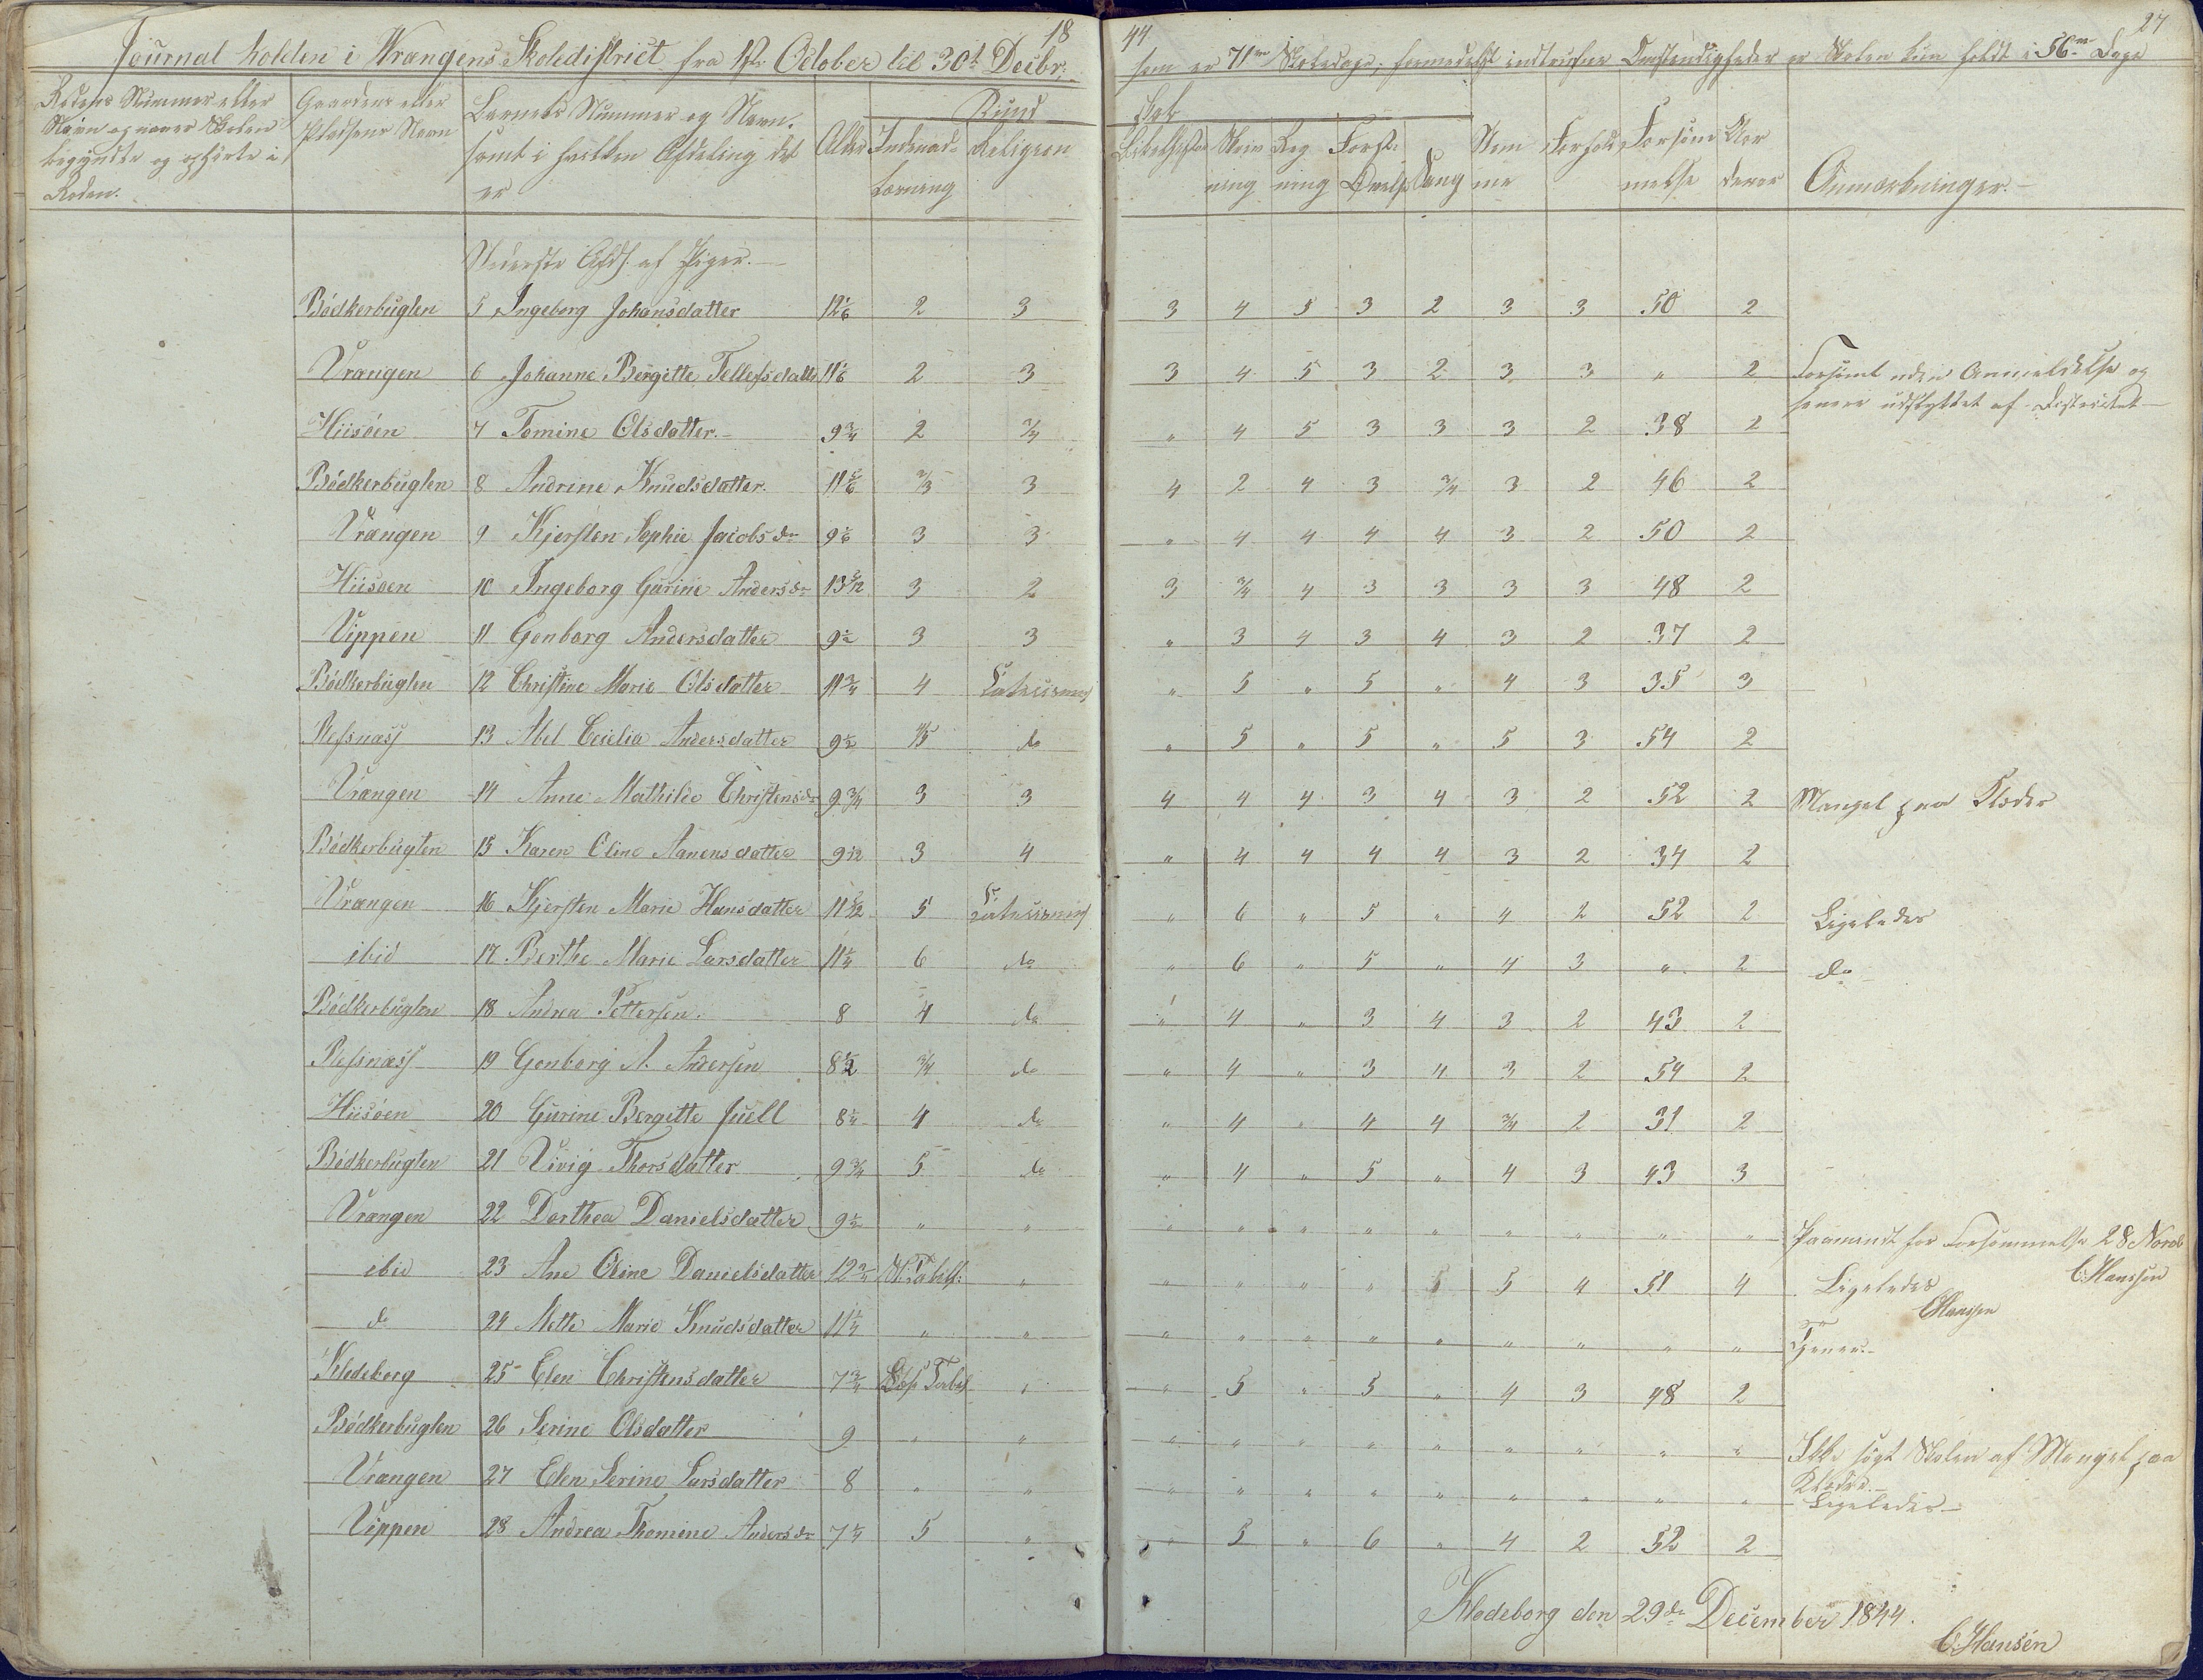 18 44 27
Journal holden i Wrangens Skoledistrict fra 1ste October til 30te Decbr:
som er 71 Skoledage, formedelst indtrufne Omstændigheder er Skolen kun holdt i 56 Dage
Rodens Nummer eller Navn og naar Skolen begyndte og ophørte i Roden.
Gaardens eller Pladsens Navn
Barnets Nummer og Navn, samt i hvilken Afdeling det er
Alder
Kund skab
Indenad-læsning
Religion
Skriv ning
Reg ning
Forst:
Sang
Nem me
Forhold
Forsøm melse
Anmærkninger.
Nederste Afd: af Piger.
Bödkerbugten 5 Ingeborg Johansdatter 12 1/6 2 3 3 4 5 3 2 3 3 50 2
Vrangen 6 Johanne Bergitte Tellefsdatter 11 1/6 2 3 3 4 5 3 2 3 3 " 2 Forsømt uden Anmeldelse og senere udflyttet af Districtet
Hiisöen 7 Tomine Olsdatter 9 3/4 2 3/4 " 4 5 3 3 3 2 38 2
Bödkerbugten 8 Andrine Knudsdatter 11 5/6 2/3 3 4 2 4 3 3/4 3 2 46 2
Vrangen 9 Kjersten Sophie Jacobsdr 9 1/6 3 3 " 4 4 4 4 3 2 50 2
Hiisöen 10 Ingeborg Gurine Andersdr 13 5/12 3 2 3 3/4 4 3 3 3 3 48 2
Vippen 11 Gonborg Andersdatter 9 1/2 3 3 " 3 4 3 4 3 2 37 2
Bödkerbugten 12 Christine Marie Olsdatter 11 3/4 4 Catecismus " 5 " 5 " 4 3 35 3
Refsnæss 13 Abel Cecilia Andersdatter 9 1/2 4/5 do " 5 " 5 " 5 3 54 2
Vrangen 14 Anne Mathilde Christensdr 9 3/4 3 3 4 4 4 3 4 3 2 52 2 Mangel paa Klæder
Bödkerbugten 15 Karen Oline Aanensdatter 9 1/12 3 4 " 4 4 4 4 3 2 34 2
Vrangen 16 Kjersten Marie Hansdatter 11 5/12 5 Catecismus " 6 " 5 " 4 2 52 2 Ligeledes
ibid 17 Berthe Marie Larsdatter 11 1/4 6 do " 6 " 5 " 4 3 " 2 do
Bödkerbugten 18 Andrea Pettersen. 8 4 do " 4 " 3 4 3 2 43 2
Refsnæss 19 Gonborg A. Andersen 8 1/2 3/4 do " 4 " 3 4 3 2 54 2
Hiisöen 20 Gurine Bergitte Juell 8 1/4 4 do " 4 " 4 4 3/4 2 31 2
Bödkerbugten 21 Vivig Thorsdatter 9 3/4 5 do " 4 " 5 " 4 3 43 3
Vrangen 22 Dorthea Danielsdatter 9 1/2 " " " " " " " " " " " Paamindt for Forsømmelse 28 Novb C. Hanssen
ibid 23 Ane Oline Danielsdatter 12 3/4 " " " " " 5 5 4 51 4 Ligeledes CHanssen
do 24 Mette Marie Knudsdatter 11 1/4 " " " " " " " " " " " Tjener.
Klodeborg 25 Elen Christensdatter 7 3/4 " " 5 " 5 " 4 3 48 2
Bödkerbugten 26 Serine Olsdatter 9 " " " " " " " " " " " Ikke søgt Skolen af Mangel paa Klæder.
Vrangen 27 Elen Serine Larsdatter 8 " " " " " " " " " " " Ligeledes
Vippen 28 Andrea Thomine Andersdr 7 1/4 5 " " 5 " 6 " 4 2 52 2
Klodeborg den 29de December 1844.
C. Hansen